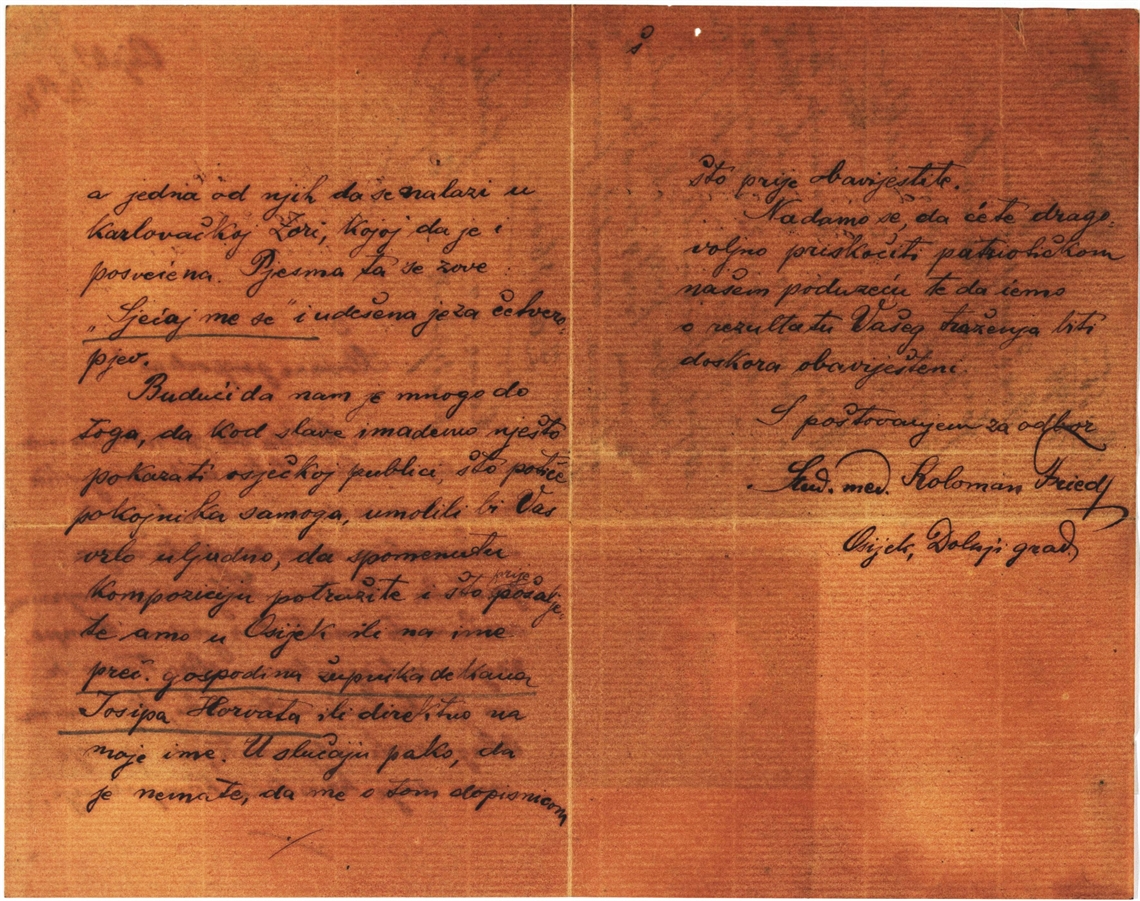 a jedna od njih da se nalazi u
Karlovačkoj Zori, kojoj da je i
posvećena. Pjesma ta se zove
„Sjećaj me se" i udešena je za četvero-
pjev.
Budući da nam je mnogo do
toga, da kod slave imademo nješto
pokazati osječkoj publici, što potiče
pokojnika samoga, umolili bi Vas
vrlo uljudno, da spomenutu
kompoziciju potražite i što prije pošalje-
te amo u Osijek ili na ime
preč. gospodina župnika dekana
Josipa Horvata ili direktno na
moje ime. U slučaju pako, da
je nemate, da me o tom dopisnicom
što prije obavijestite.
Nadamo se, da ćete drago-
voljno priskočiti patriotičkom
našem poduzeću te da ćemo
o rezultatu Vašeg traženja biti
doskora obaviješteni.
S poštovanjem za odbor
Stud. med. Koloman Fried
Osijek, Dolnji grad